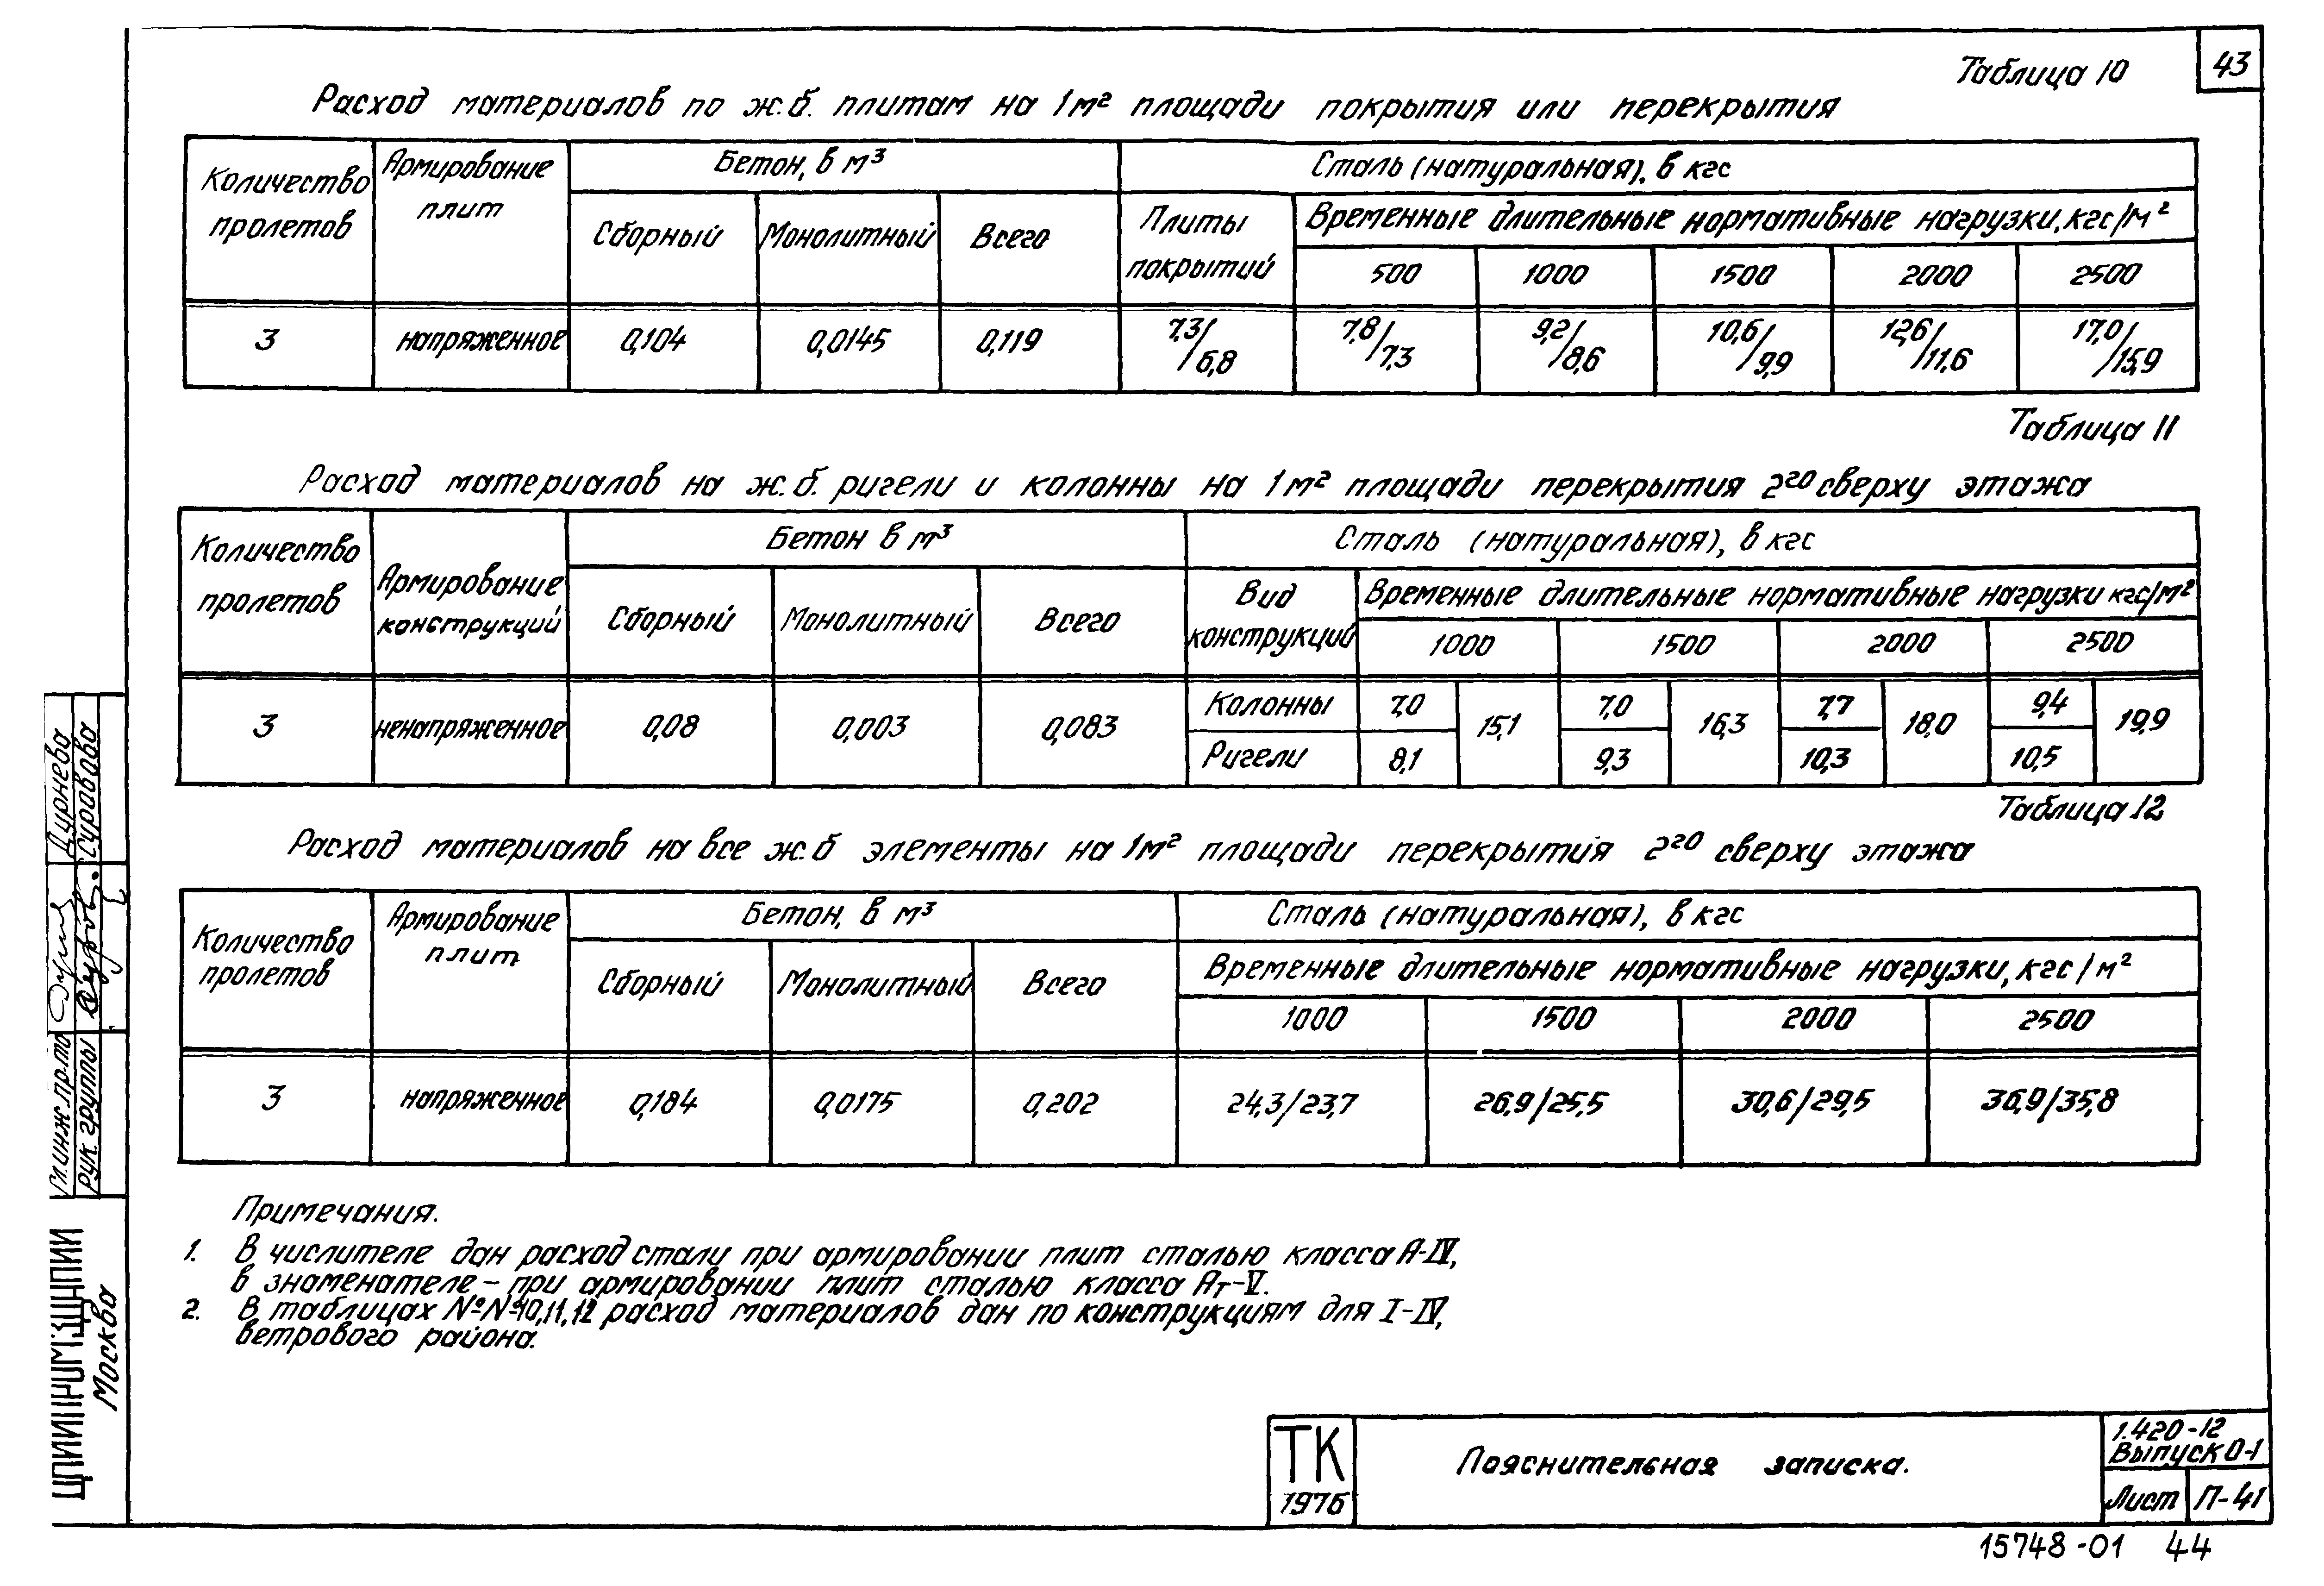 43
Таблица 10
Расход материалов по ж.б. плитам на 1м² площади покрытия или перекрытия
Количество пролетов
Армирование плит
Бетон, в м³
Сталь (натуральная), в кгс
Сборный
Монолитный
Всего
Плиты покрытий
Временные длительные нормативные нагрузки, кгс/м²
500 1000 1500 2000 2500
3 напряженное 0,104 0,0145 0,119 7,3/6,8 7,8/7,3 9,2/8,6 10,6/9,9 12,6/11,6 17,0/15,9
Таблица 11
Расход материалов на ж.б. ригели и колонны на 1м² площади перекрытия 2го сверху этажа
Количество пролетов
Армирование конструкций
Бетон в м³
Сталь (натуральная), в кгс
Сборный
Монолитный
Всего
Вид конструкций
Временные длительные нормативные нагрузки кгс/м²
1000 1500 2000 2500
3 ненапряженное 0,08 0,003 0,083
Колонны 7,0 15,1 7,0 16,3 7,7 18,0 9,4 19,9
Ригели 8,1 9,3 10,3 10,5
Таблица 12
Расход материалов на все ж.б элементы на 1м² площади перекрытия 2го сверху этажа
Количество пролетов
Армирование плит
Бетон, в м³
Сталь (натуральная), в кгс
Сборный
Монолитный
Всего
Временные длительные нормативные нагрузки, кгс/м²
1000 1500 2000 2500
3 напряженное 0,184 0,0175 0,202 24,3/23,7 26,9/25,5 30,6/29,5 36,9/35,8
Примечания.
1. В числителе дан расход стали при армировании плит сталью класса А-IV,
в знаменателе – при армировании плит сталью класса Ат-V.
2. В таблицах №№10,11,12 расход материалов дан по конструкциям для I-IV,
ветрового района.
Гл.инж.пр.та Дурнева
Рук. группы Суровова
Москва
ТК
1976
Пояснительная записка.
1.420-12
Выпуск 0-1
Лист П-41
15748-01 44